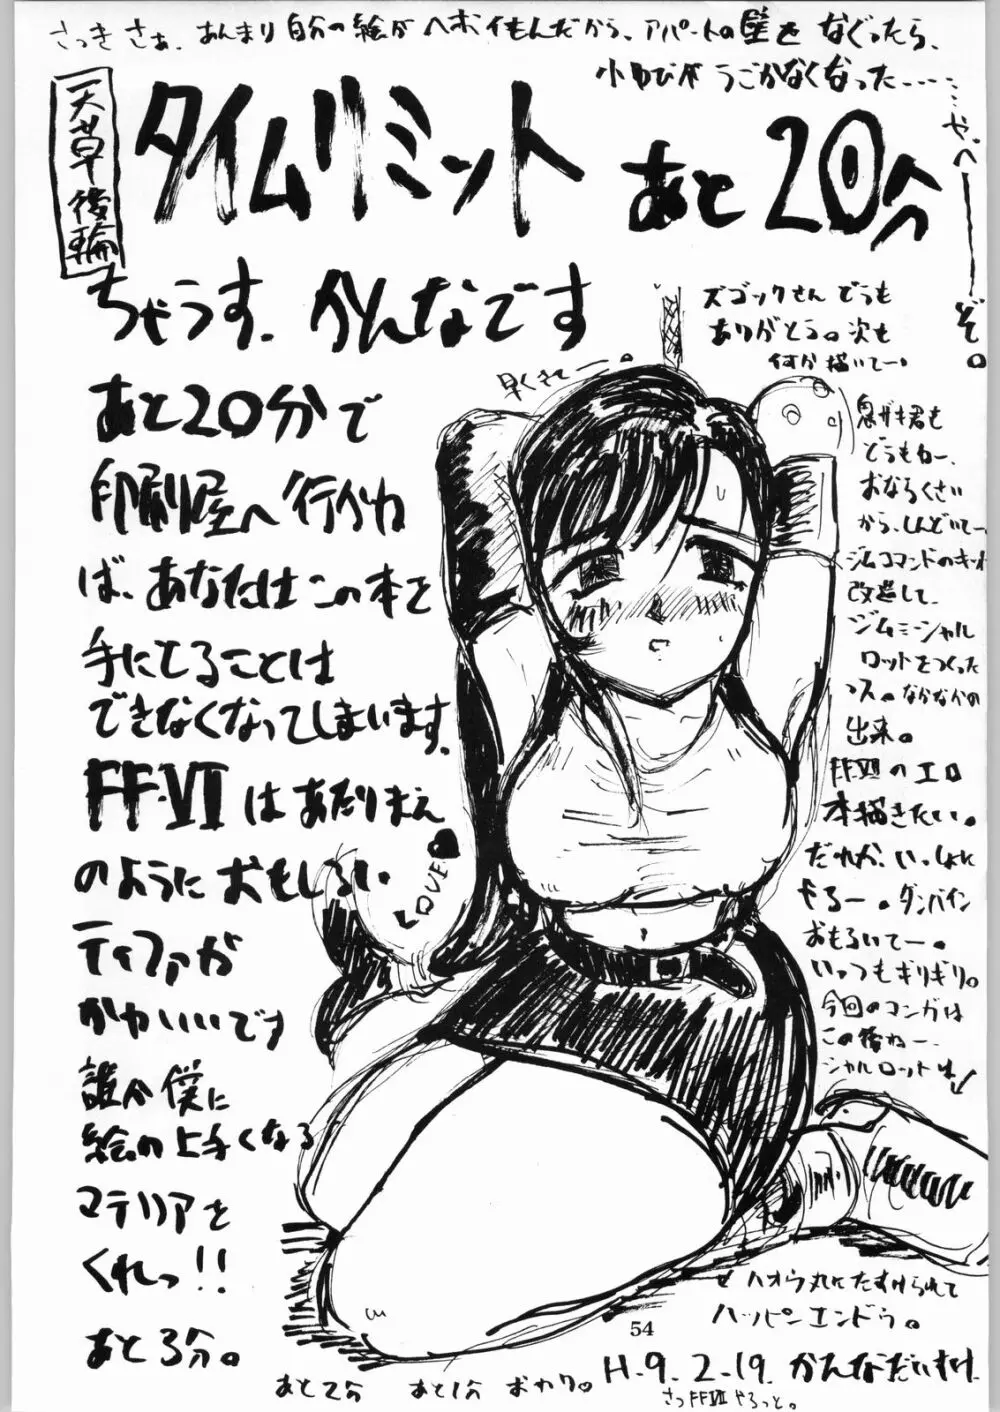 さっきさぁ、あんまり自分の絵がヘボイもんだから、アパートの壁をなぐったら、
小ゆびがうごかなくなった……
……や、べーーぞ。
天草後輪
タイムリミット あと20分
ちゃうす、かんなです
あと20分で
印刷屋へ行かね
ば、あなたはこの本を
手にてることは
できなくなってしまいます。
FF.VIIはあたりまえ
のようにおもしろい
ティファが
かわいいです
誰か僕に
絵の上手くなる
マテリアを
くれっ!!
あと3分。
あと2分 あと1分 おわり。
早くきてー。
LOVE
ズゴックさんどうも
ありがとう。次も
何か描いてー。
君も
どうもねー、
おならくさい
から、しんどいてー、
ジムコマンドのキット
改造して、
ジムミーシャル
ロットをつくった
っス。なかなかの
出来。
FFVIIのエロ
本描きたい。
だれか、いっしょに
やるー。ダンバイン
おもろいてー。
いっつもギリギリ。
今回のマンガは
この後ねー、
シャルロットは
ハオウ丸にたすけられて
ハッピンエンドゥ。
54
H.9.2.19. かんなだいすけ
さっFFVIIやろっと。